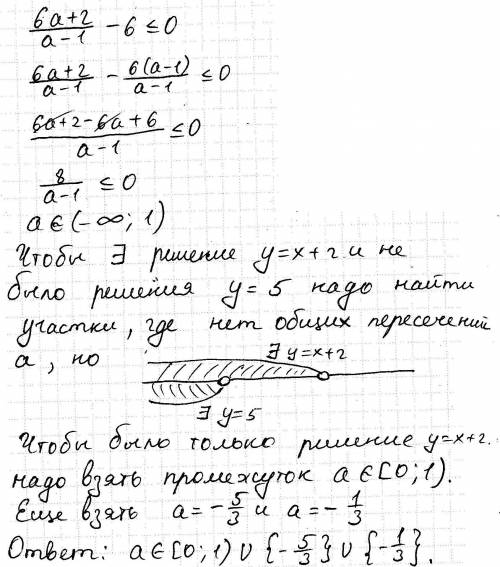 (6a+2)/(a-1) - 6 ≤ 0
(6a+2)/(a-1) - 6(a-1)/(a-1) ≤ 0
(6a+2-6a+6)/(a-1) ≤ 0
8/(a-1) ≤ 0
a∈(-∞; 1)
Чтобы ∃ решение y=x+2 и не
было решения y=5 надо найти
участки, где нет общих пересечений
a, но
∃ y=x+2
∃ y=5
Чтобы было только решение y=x+2.
надо взять промежсуток a∈[0;1).
Еще взять a=-5/3 и a=-1/3
Ответ: a∈[0;1)∪{-5/3}∪{-1/3}.